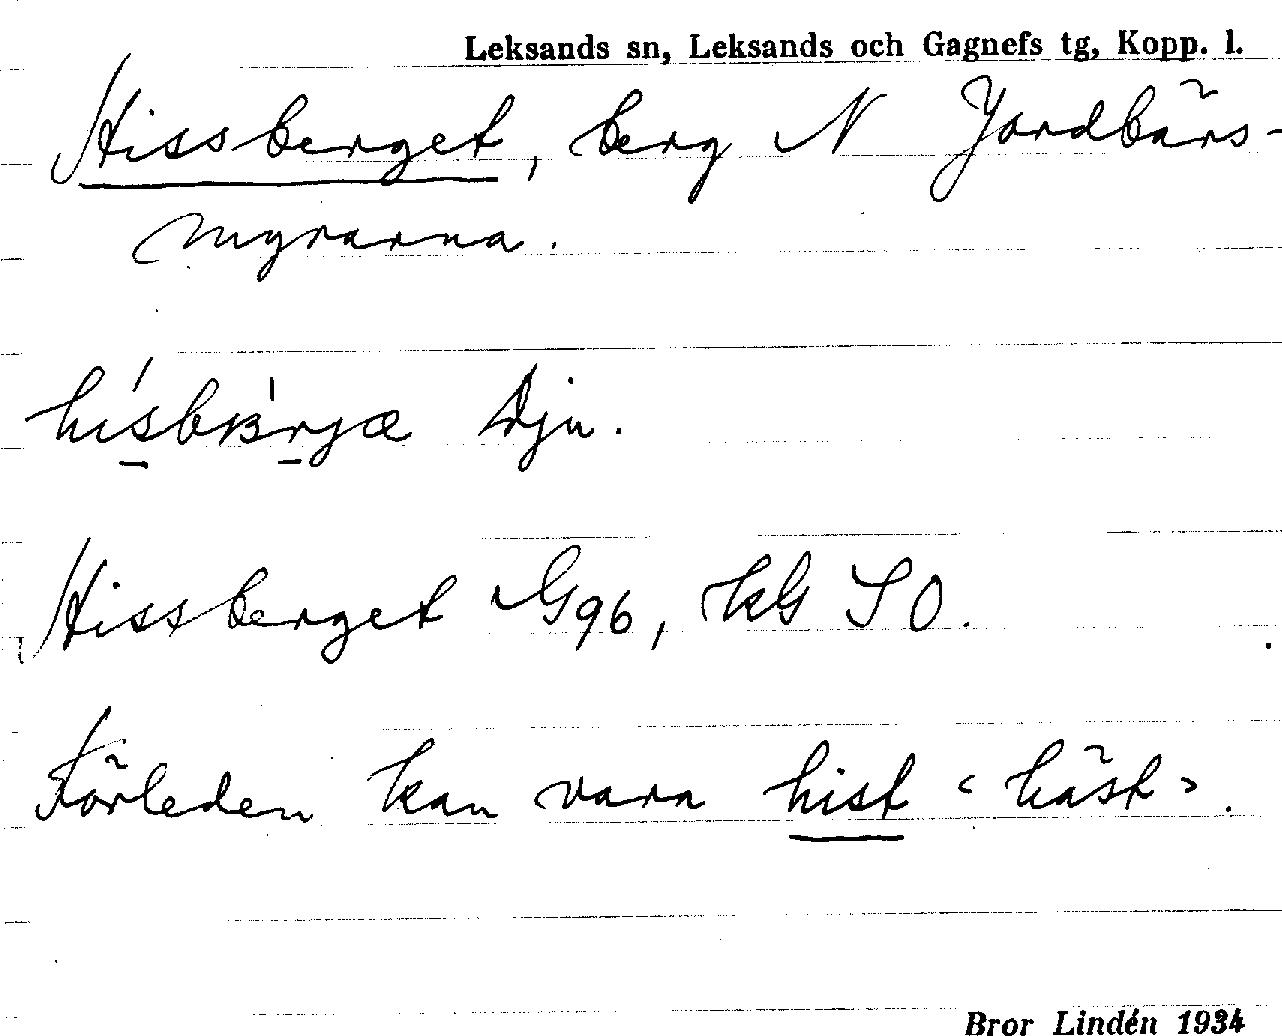 Leksands sn, Leksands och Gagnefs tg, Kopp. l.
Hissberget, berg N Jordbärs-
myrarna.
Dju.
Hissberget G96, kG SO.
Förleden kan vara hist <häst>.
Bror Lindén 1934